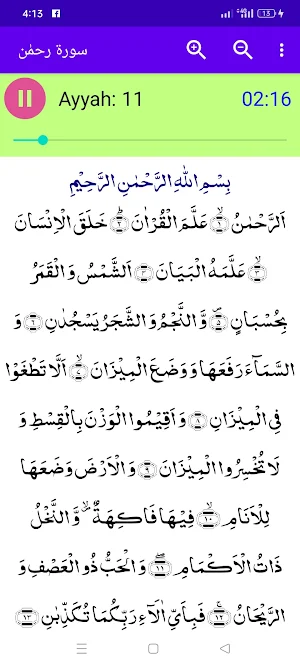 4:13
13
سورة رحمٰن
Ayyah: 11
02:16
بِسْمِ اللّٰهِ الرَّحْمٰنِ الرَّحِيْمِ
اَلرَّحْمٰنُ ۙ﴿۱﴾ عَلَّمَ الْقُرْاٰنَ ؕ﴿۲﴾ خَلَقَ الْاِنْسَانَ
ۙ﴿۳﴾ عَلَّمَهُ الْبَيَانَ ﴿۴﴾ اَلشَّمْسُ وَالْقَمَرُ
بِحُسْبَانٍ ۪﴿۵﴾ وَّالنَّجْمُ وَالشَّجَرُ يَسْجُدٰنِ ﴿۶﴾ وَ
السَّمَآءَ رَفَعَهَا وَوَضَعَ الْمِيْزَانَ ۙ﴿۷﴾ اَلَّا تَطْغَوْا
فِى الْمِيْزَانِ ﴿۸﴾ وَاَقِيْمُوا الْوَزْنَ بِالْقِسْطِ وَ
لَا تُخْسِرُوا الْمِيْزَانَ ﴿۹﴾ وَالْاَرْضَ وَضَعَهَا
لِلْاَنَامِ ۙ﴿۱۰﴾ فِيْهَا فَاكِهَةٌ ۪ۙ وَّالنَّخْلُ
ذَاتُ الْاَكْمَامِ ۖ﴿۱۱﴾ وَالْحَبُّ ذُو الْعَصْفِ وَ
الرَّيْحَانُ ۚ﴿۱۲﴾ فَبِاَىِّ اٰلَآءِ رَبِّكُمَا تُكَذِّبٰنِ ﴿۱۳﴾